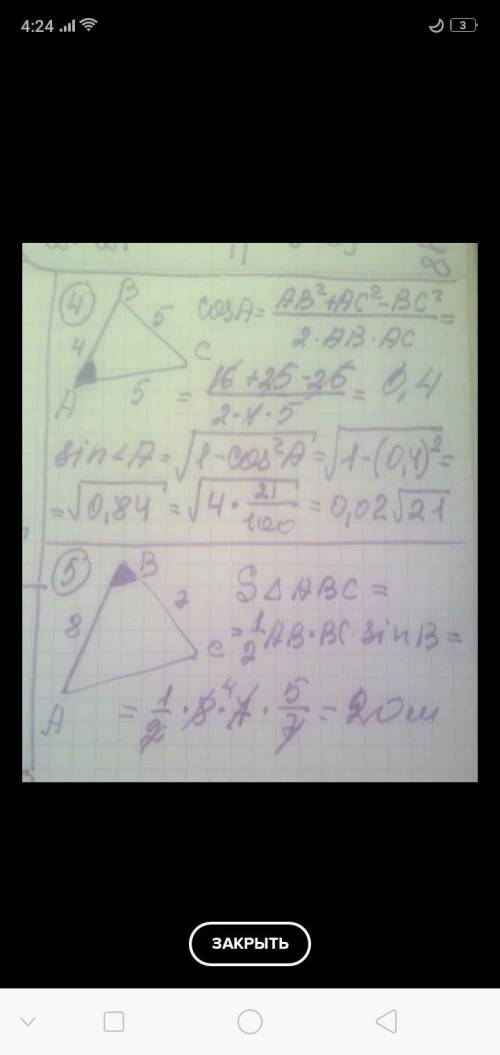 4:24
3
4
B
5
cosA = AB²+AC²-BC² / 2·AB·AC =
4
C
A
5
= 16+25-25 / 2·4·5 = 0,4
sin∠A = √1-cos²A = √1-(0,4)² =
= √0,84 = √4·21/100 = 0,02√21
5
B
7
S△ABC =
8
C
= 1/2 AB·BC·sinB =
A
= 1/2·8·4·7·5/7 = 20
ЗАКРЫТЬ